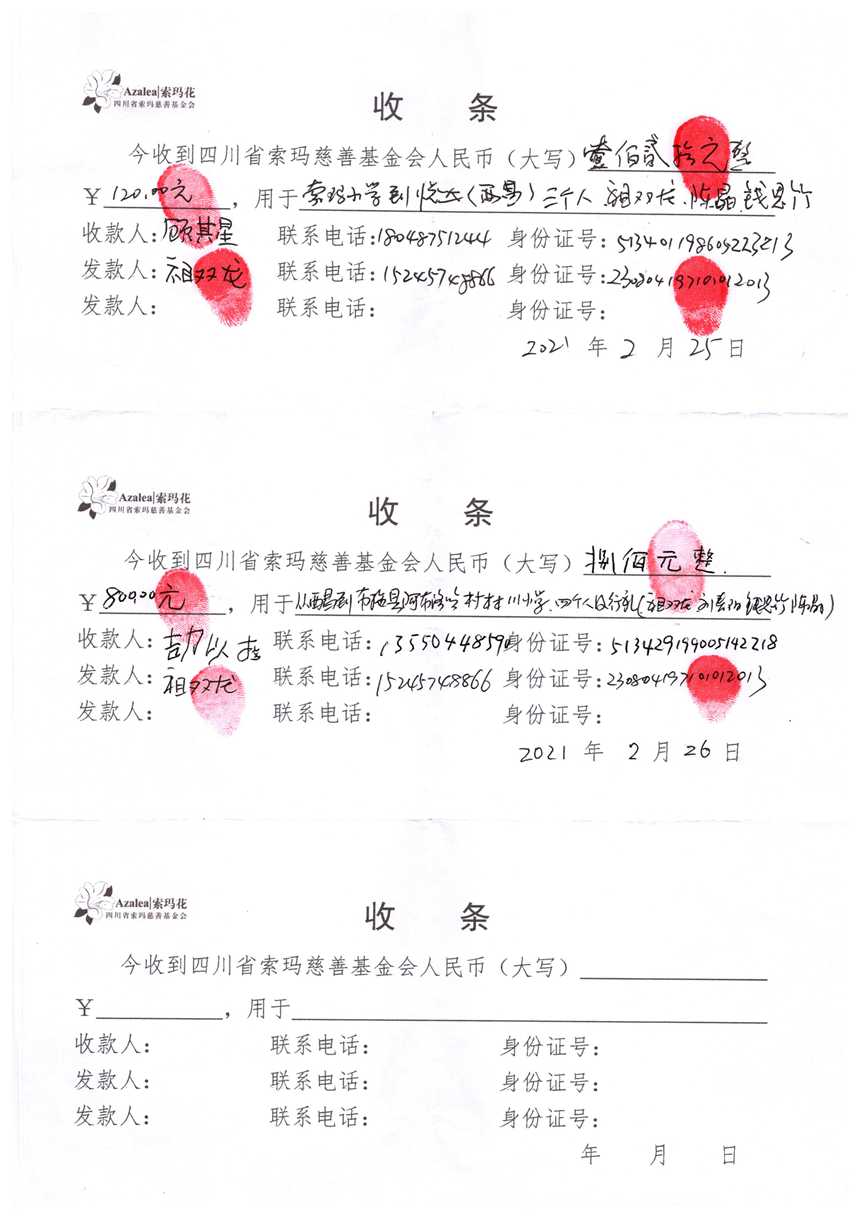 Azalea|索玛花
四川省索玛慈善基金会
收 条
今收到四川省索玛慈善基金会人民币（大写）壹佰贰拾元整
￥120.00元，用于索玛小学到（西昌）三个人 祖双龙.陈晶.钱思竹
收款人：顾其星 联系电话：18048751244 身份证号：
发款人：祖双龙 联系电话：15245748866 身份证号：230804197101012013
发款人： 联系电话： 身份证号：
2021 年 2 月 25 日
Azalea|索玛花
四川省索玛慈善基金会
收 条
今收到四川省索玛慈善基金会人民币（大写）捌佰元整.
￥800.00元，用于从西昌到布拖县阿布洛村村小学.四个人及行礼(祖双龙 钱思竹 陈晶)
收款人： 联系电话：13550448590 身份证号：513429199005142218
发款人：祖双龙 联系电话：15245748866 身份证号：230804197101012013
发款人： 联系电话： 身份证号：
2021 年 2 月 26 日
Azalea|索玛花
四川省索玛慈善基金会
收 条
今收到四川省索玛慈善基金会人民币（大写）
￥ ，用于
收款人： 联系电话： 身份证号：
发款人： 联系电话： 身份证号：
发款人： 联系电话： 身份证号：
年 月 日